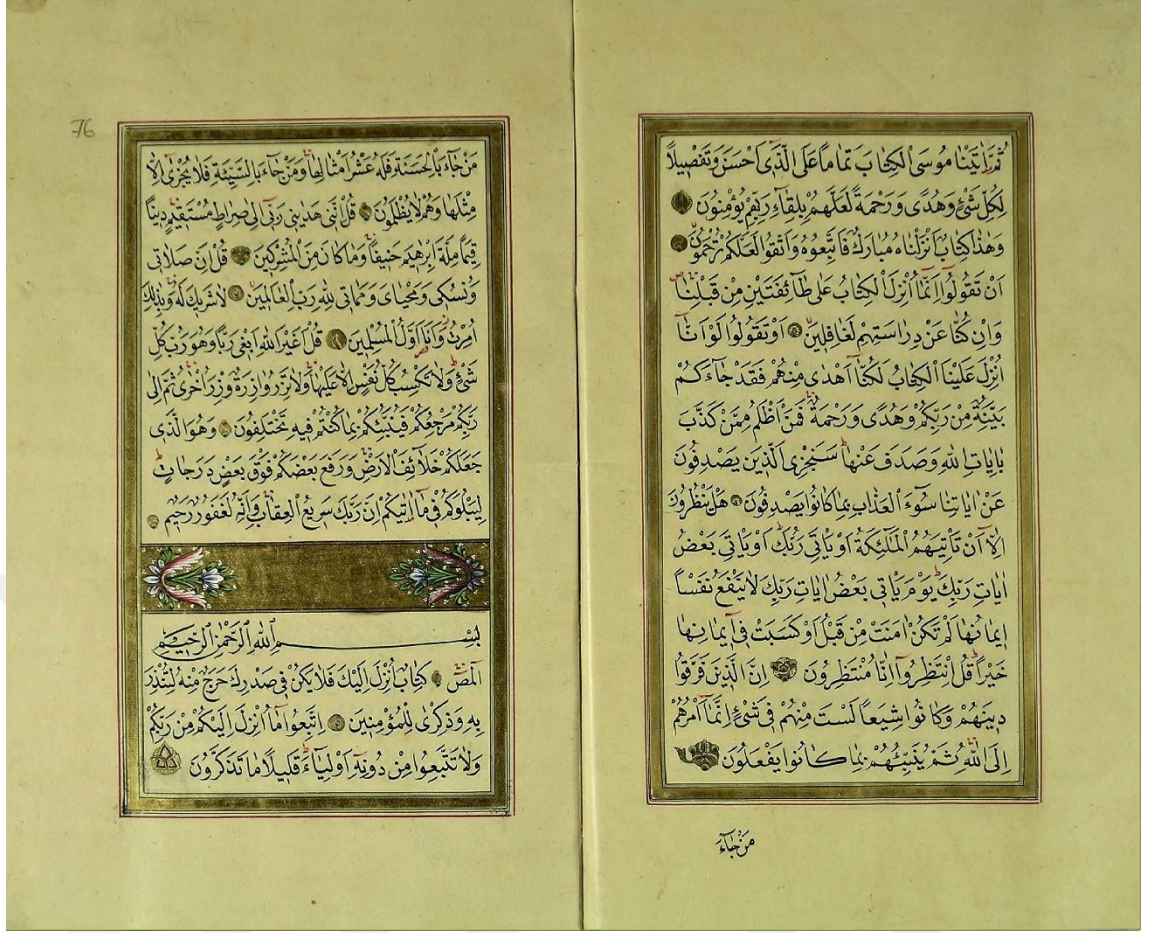 ثُمَّ اٰتَيْنَا مُوسَى الْكِتَابَ تَمَامًا عَلَى الَّذٖٓى اَحْسَنَ وَتَفْصٖيلًا
لِكُلِّ شَيْءٍ وَهُدًى وَرَحْمَةً لَعَلَّهُمْ بِلِقَٓاءِ رَبِّهِمْ يُؤْمِنُونَ
وَهٰذَا كِتَابٌ اَنْزَلْنَاهُ مُبَارَكٌ فَاتَّبِعُوهُ وَاتَّقُوا لَعَلَّكُمْ تُرْحَمُونَ
اَنْ تَقُولُٓوا اِنَّمَٓا اُنْزِلَ الْكِتَابُ عَلٰى طَٓائِفَتَيْنِ مِنْ قَبْلِنَا
وَاِنْ كُنَّا عَنْ دِرَاسَتِهِمْ لَغَافِلٖينَ اَوْ تَقُولُوا لَوْ اَنَّٓا
اُنْزِلَ عَلَيْنَا الْكِتَابُ لَكُنَّٓا اَهْدٰى مِنْهُمْ فَقَدْ جَٓاءَكُمْ
بَيِّنَةٌ مِنْ رَبِّكُمْ وَهُدًى وَرَحْمَةٌ فَمَنْ اَظْلَمُ مِمَّنْ كَذَّبَ
بِاٰيَاتِ اللّٰهِ وَصَدَفَ عَنْهَا سَنَجْزِى الَّذٖينَ يَصْدِفُونَ
عَنْ اٰيَاتِنَا سُٓوءَ الْعَذَابِ بِمَا كَانُوا يَصْدِفُونَ هَلْ يَنْظُرُونَ
اِلَّٓا اَنْ تَاْتِيَهُمُ الْمَلٰٓئِكَةُ اَوْ يَاْتِىَ رَبُّكَ اَوْ يَاْتِىَ بَعْضُ
اٰيَاتِ رَبِّكَ يَوْمَ يَاْتٖى بَعْضُ اٰيَاتِ رَبِّكَ لَا يَنْفَعُ نَفْسًا
اٖيمَانُهَا لَمْ تَكُنْ اٰمَنَتْ مِنْ قَبْلُ اَوْ كَسَبَتْ فٖٓى اٖيمَانِهَا
خَيْرًا قُلِ انْتَظِرُٓوا اِنَّا مُنْتَظِرُونَ اِنَّ الَّذٖينَ فَرَّقُوا
دٖينَهُمْ وَكَانُوا شِيَعًا لَسْتَ مِنْهُمْ فٖى شَيْءٍ اِنَّمَٓا اَمْرُهُمْ
اِلَى اللّٰهِ ثُمَّ يُنَبِّئُهُمْ بِمَا كَانُوا يَفْعَلُونَ
مَنْ جَٓاءَ
76
مَنْ جَٓاءَ بِالْحَسَنَةِ فَلَهُ عَشْرُ اَمْثَالِهَا وَمَنْ جَٓاءَ بِالسَّيِّئَةِ فَلَا يُجْزٰٓى اِلَّا
مِثْلَهَا وَهُمْ لَا يُظْلَمُونَ قُلْ اِنَّنٖى هَدٰينٖى رَبّٖٓى اِلٰى صِرَاطٍ مُسْتَقٖيمٍ دٖينًا
قِيَمًا مِلَّةَ اِبْرٰهٖيمَ حَنٖيفًا وَمَا كَانَ مِنَ الْمُشْرِكٖينَ قُلْ اِنَّ صَلَاتٖى
وَنُسُكٖى وَمَحْيَاىَ وَمَمَاتٖى لِلّٰهِ رَبِّ الْعَالَمٖينَ لَا شَرٖيكَ لَهُ وَبِذٰلِكَ
اُمِرْتُ وَاَنَا۬ اَوَّلُ الْمُسْلِمٖينَ قُلْ اَغَيْرَ اللّٰهِ اَبْغٖى رَبًّا وَهُوَ رَبُّ كُلِّ
شَيْءٍ وَلَا تَكْسِبُ كُلُّ نَفْسٍ اِلَّا عَلَيْهَا وَلَا تَزِرُ وَازِرَةٌ وِزْرَ اُخْرٰى ثُمَّ اِلٰى
رَبِّكُمْ مَرْجِعُكُمْ فَيُنَبِّئُكُمْ بِمَا كُنْتُمْ فٖيهِ تَخْتَلِفُونَ وَهُوَ الَّذٖى
جَعَلَكُمْ خَلَٓائِفَ الْاَرْضِ وَرَفَعَ بَعْضَكُمْ فَوْقَ بَعْضٍ دَرَجَاتٍ
لِيَبْلُوَكُمْ فٖى مَٓا اٰتٰيكُمْ اِنَّ رَبَّكَ سَرٖيعُ الْعِقَابِ وَاِنَّهُ لَغَفُورٌ رَحٖيمٌ
بِسْمِ اللّٰهِ الرَّحْمٰنِ الرَّحٖيمِ
الٓمٓصٓ كِتَابٌ اُنْزِلَ اِلَيْكَ فَلَا يَكُنْ فٖى صَدْرِكَ حَرَجٌ مِنْهُ لِتُنْذِرَ
بِهٖ وَذِكْرٰى لِلْمُؤْمِنٖينَ اِتَّبِعُوا مَٓا اُنْزِلَ اِلَيْكُمْ مِنْ رَبِّكُمْ
وَلَا تَتَّبِعُوا مِنْ دُونِهٖٓ اَوْلِيَٓاءَ قَلٖيلًا مَا تَذَكَّرُونَ